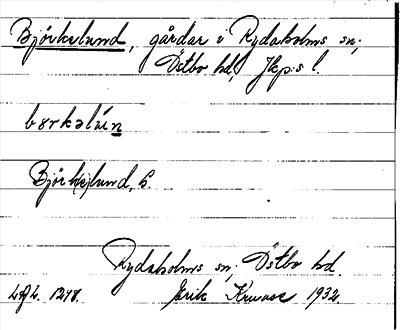 Björkelund, gårdar i Rydaholms sn;
Östbo hd, Jkp:s l.
bɘrkəlùn
Björk(e)lund, G.
Rydaholms sn; Östbo hd.
1278. Erik 1932.